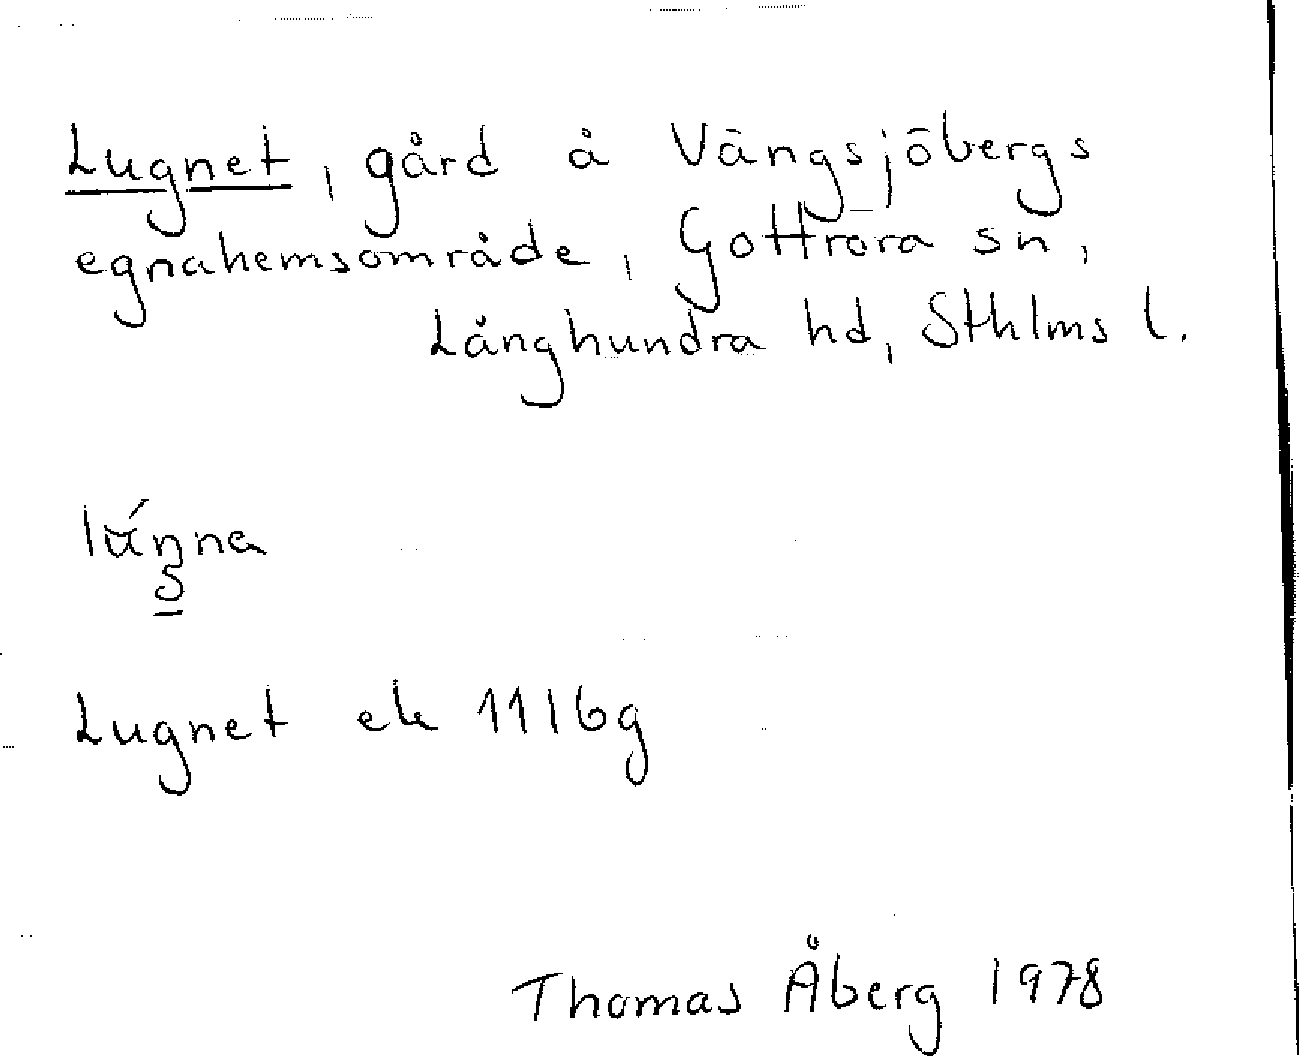 Lugnet, gård å Vängsjöbergs
egnahemsområde, Gottröra sn,
Långhundra hd, Sthlms l.
Lugnet ek 11I6g
Thomas Åberg 1978